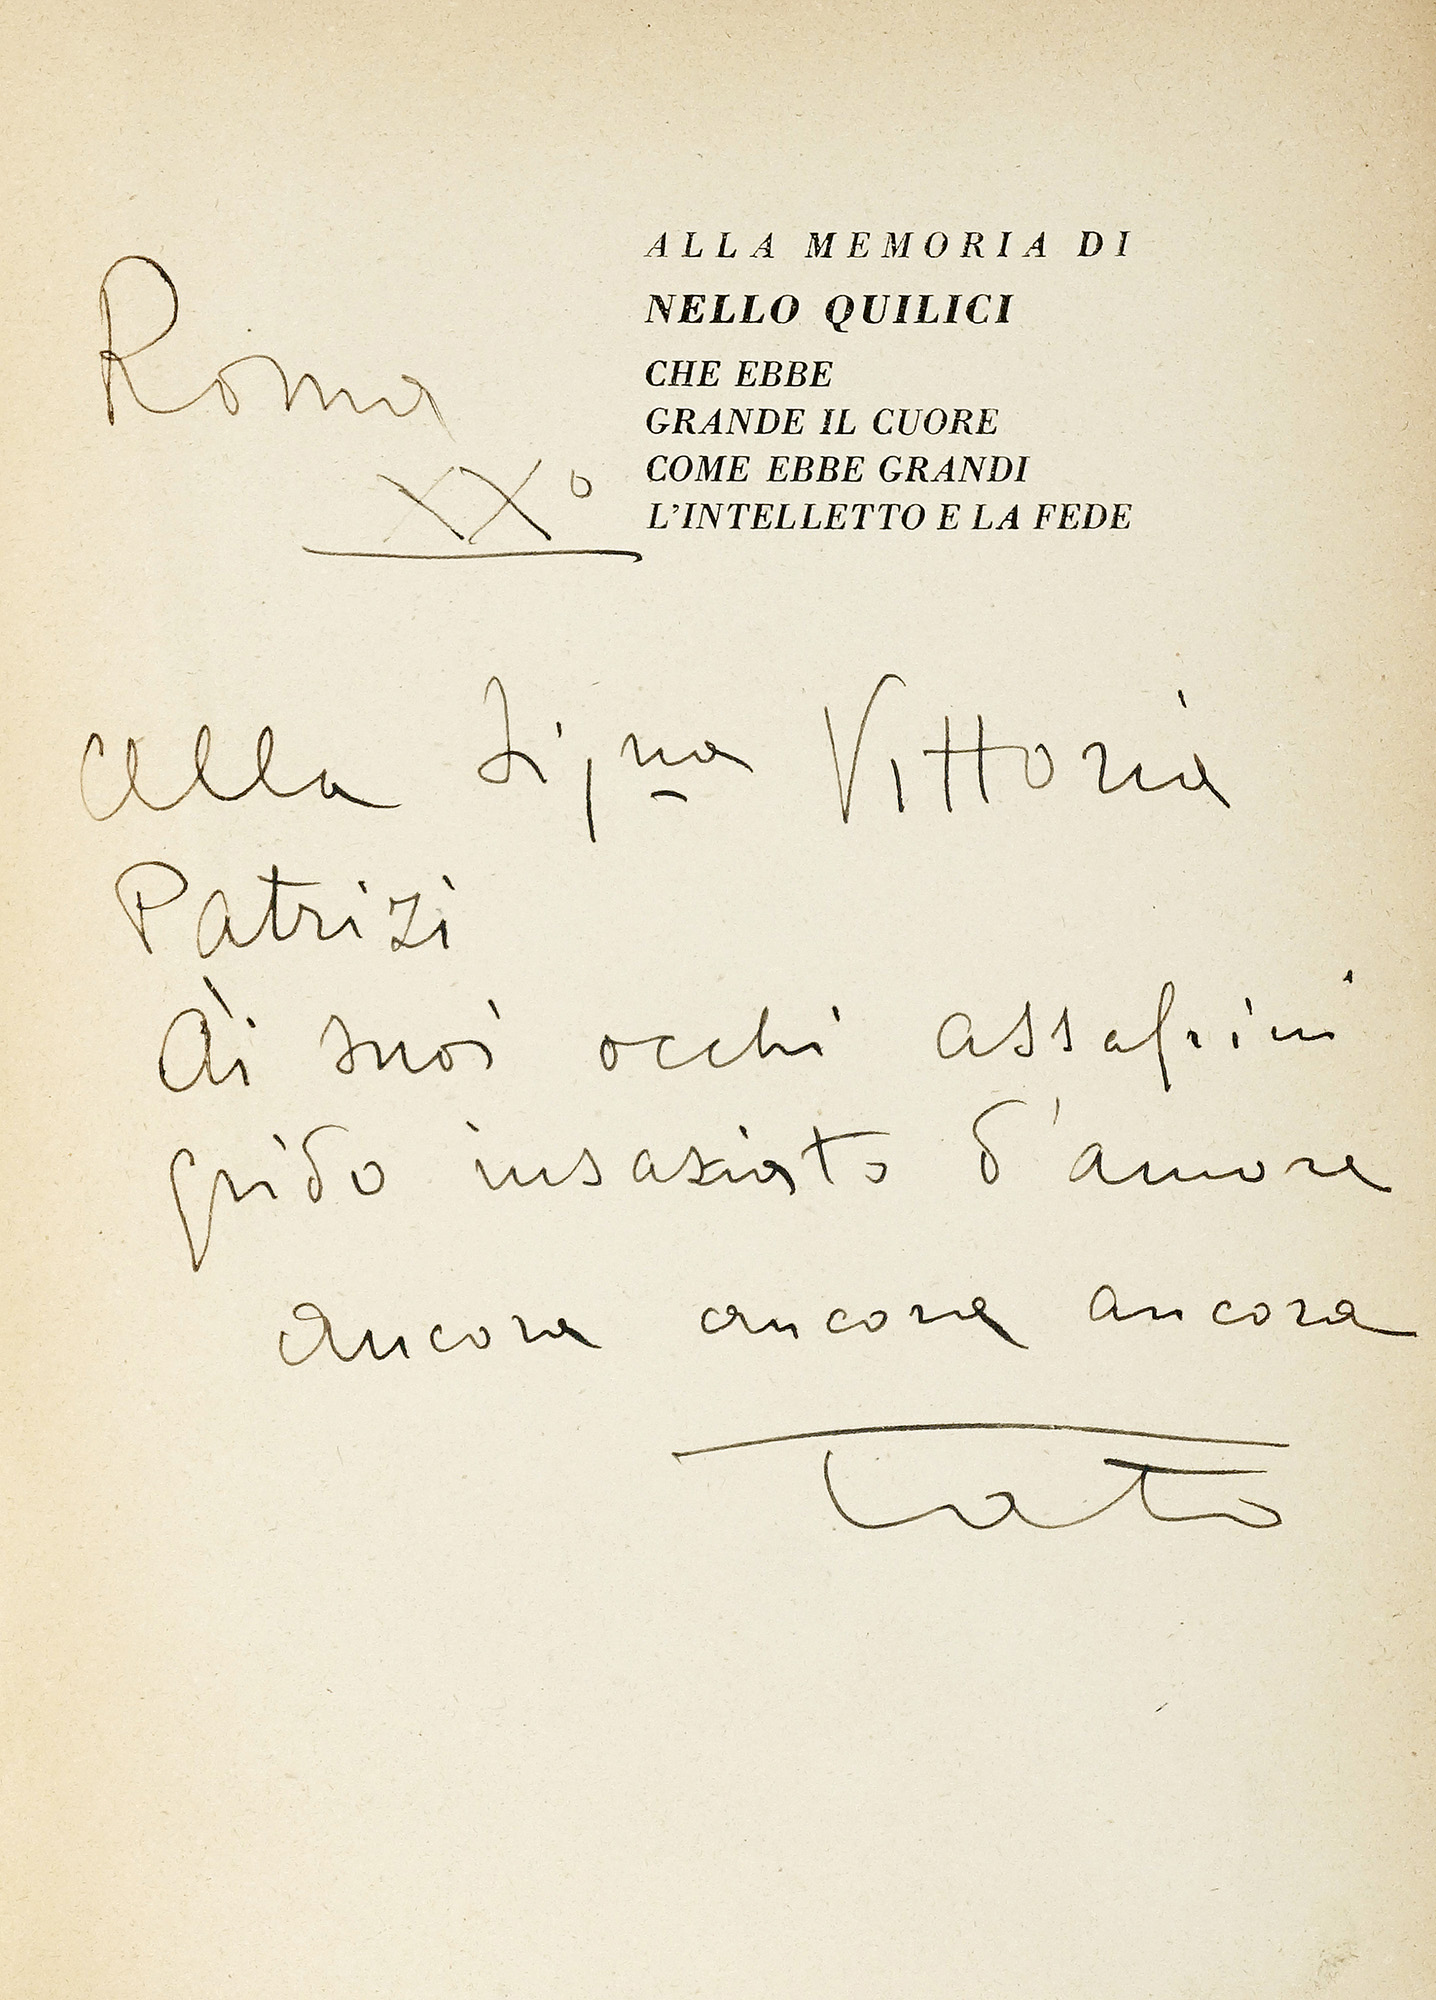 ALLA MEMORIA DI
NELLO QUILICI
CHE EBBE
GRANDE IL CUORE
COME EBBE GRANDI
L'INTELLETTO E LA FEDE
Roma
XX°
Alla Signa Vittoria
Patrizi
Ai suoi occhi assafrini
grido insaziato d'amore
ancora ancora ancora
Tato